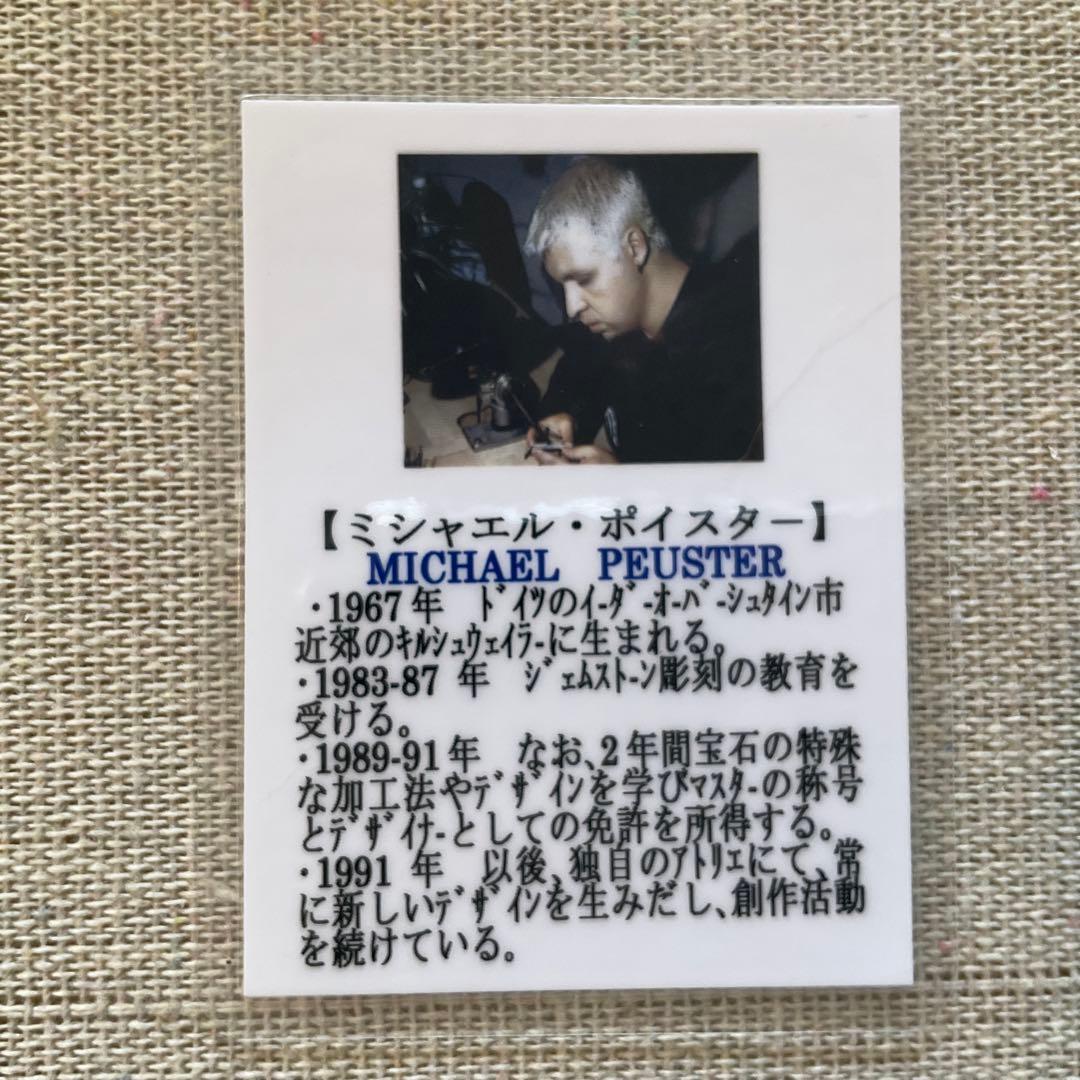 【ミシャエル・ポイスター】
MICHAEL PEUSTER
・1967年 ﾄﾞｲﾂのｲｰﾀﾞｰｵｰﾊﾞｰｼｭﾀｲﾝ市
近郊のｷﾙｼｭｳｪｲﾗｰに生まれる。
・1983-87年 ｼﾞｪﾑｽﾄｰﾝ彫刻の教育を
受ける。
・1989-91年 なお、2年間宝石の特殊
な加工法やﾃﾞｻﾞｲﾝを学びﾏｽﾀｰの称号
とﾃﾞｻﾞｲﾅｰとしての免許を所得する。
・1991年 以後、独自のｱﾄﾘｴにて、常
に新しいﾃﾞｻﾞｲﾝを生みだし、創作活動
を続けている。